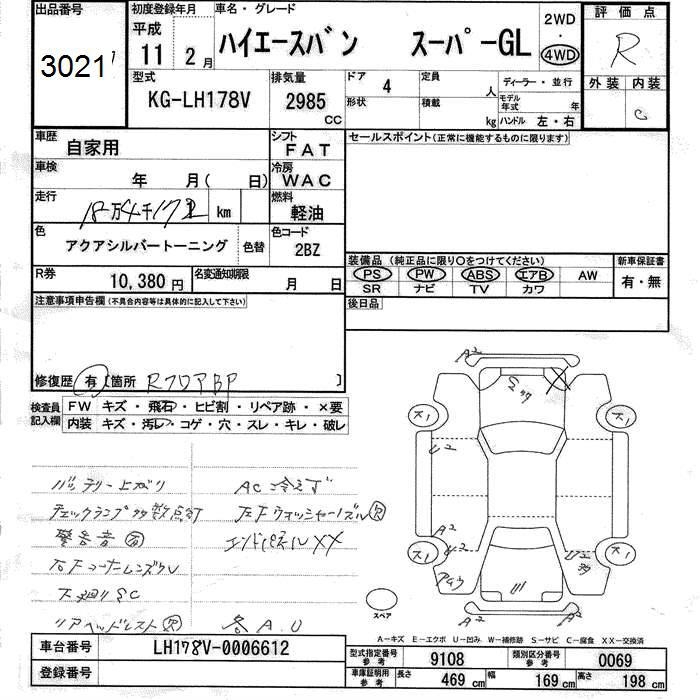 出品番号
3021
初度登録年月
平成
11 2月
車名・グレード
ハイエースバン スーパーGL
2WD
・
4WD
評価点
R
外装 内装
C
型式
KG-LH178V
排気量
2985
cc
ドア 4
形状
定員 人
積載 kg
ディーラー・並行
モデル年式 年
ハンドル 左・右
車歴
自家用
シフト
FAT
車検
年 月( 日)
冷房
WAC
走行
km
燃料
軽油
色
アクアシルバートーニング
色替
色コード
2BZ
R券
10,380円
名変通知期限
月 日
セールスポイント(正常に機能するものに限ります)
装備品 (純正品に限り○をつけてください)
PS PW ABS エアB AW
SR ナビ TV カワ
新車保証書
有・無
後日品
注意事項申告欄(不具合内容等は具体的に記入して下さい)
修復歴 有 [箇所 RフロアBP ]
検査員
記入欄
FW キズ・飛石・ヒビ割・リペア跡・×要
内装 キズ・汚レ・コゲ・穴・スレ・キレ・破レ
バッテリー上がり
AC冷えず
チェックランプ多数点灯
左Fウォッシャーノズル欠
警告音有
エンドパネルXX
右Fコーナーレンズワレ
下廻りSC
リアヘッドレスト欠
各A.U
A2
S
ス1
ス1
U2
A2
U2
ス1
ス1
A2
A2
スペア
A-キズ E-エクボ U-凹み W-補修跡 S-サビ C-腐食 XX-交換済
車台番号
LH178V-0006612
登録番号
型式指定番号
参考
9108
類別区分番号
参考
0069
車庫証明用
参考
長さ 469 cm
幅 169 cm
高さ 198 cm